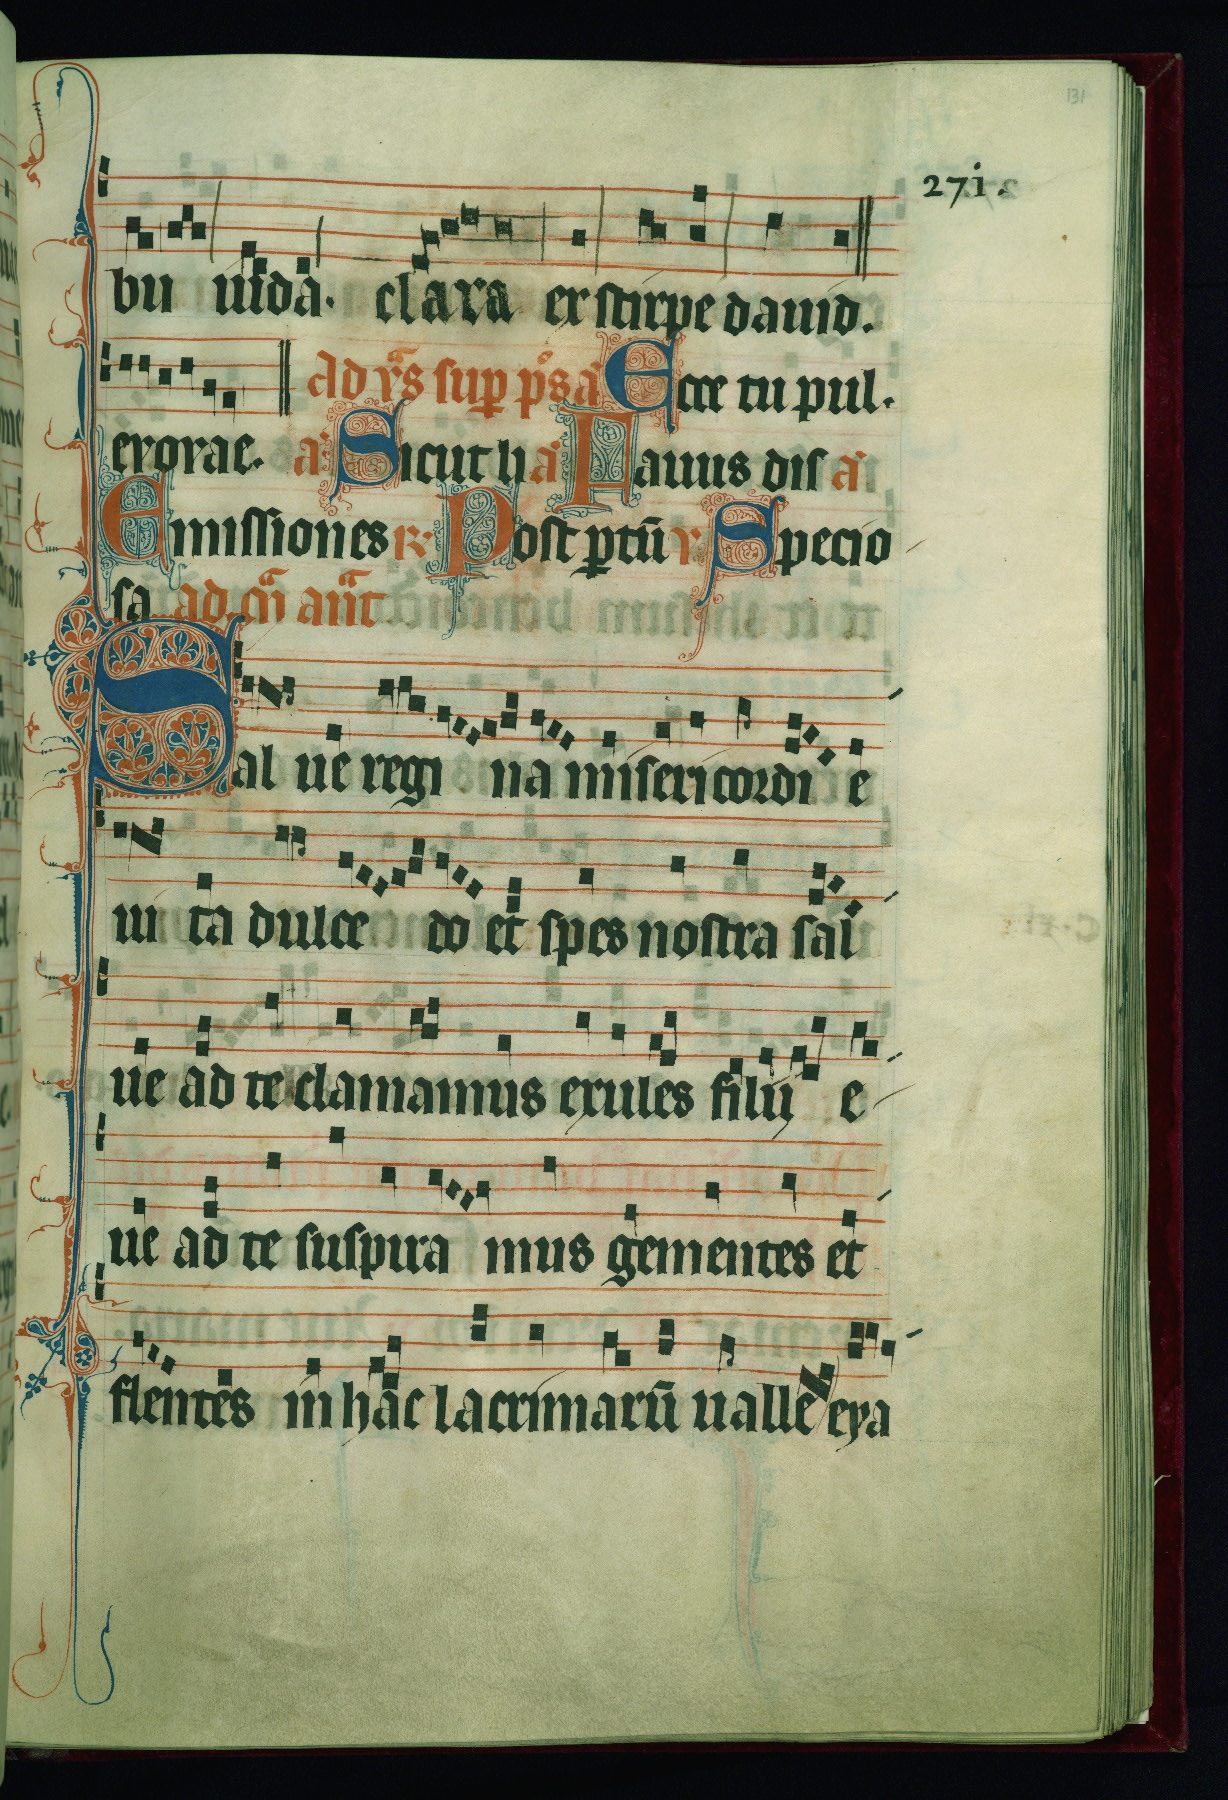 131
271.
bu uida. clara ex stirpe dauid.
Ad vs̄ sup ps̄ a Ecce tu pul.
erorae. a Sicut li a Fauus dis a
Emissiones R Post ꝑtū v Specio
sa ad cā ant
Sal ue regi na misericordi e
ui ta dulce do et spes nostra sal
ue ad te clamamus exules filij e
ue ad te suspira mus gementes et
flentes in hac lacrimarū ualle eya